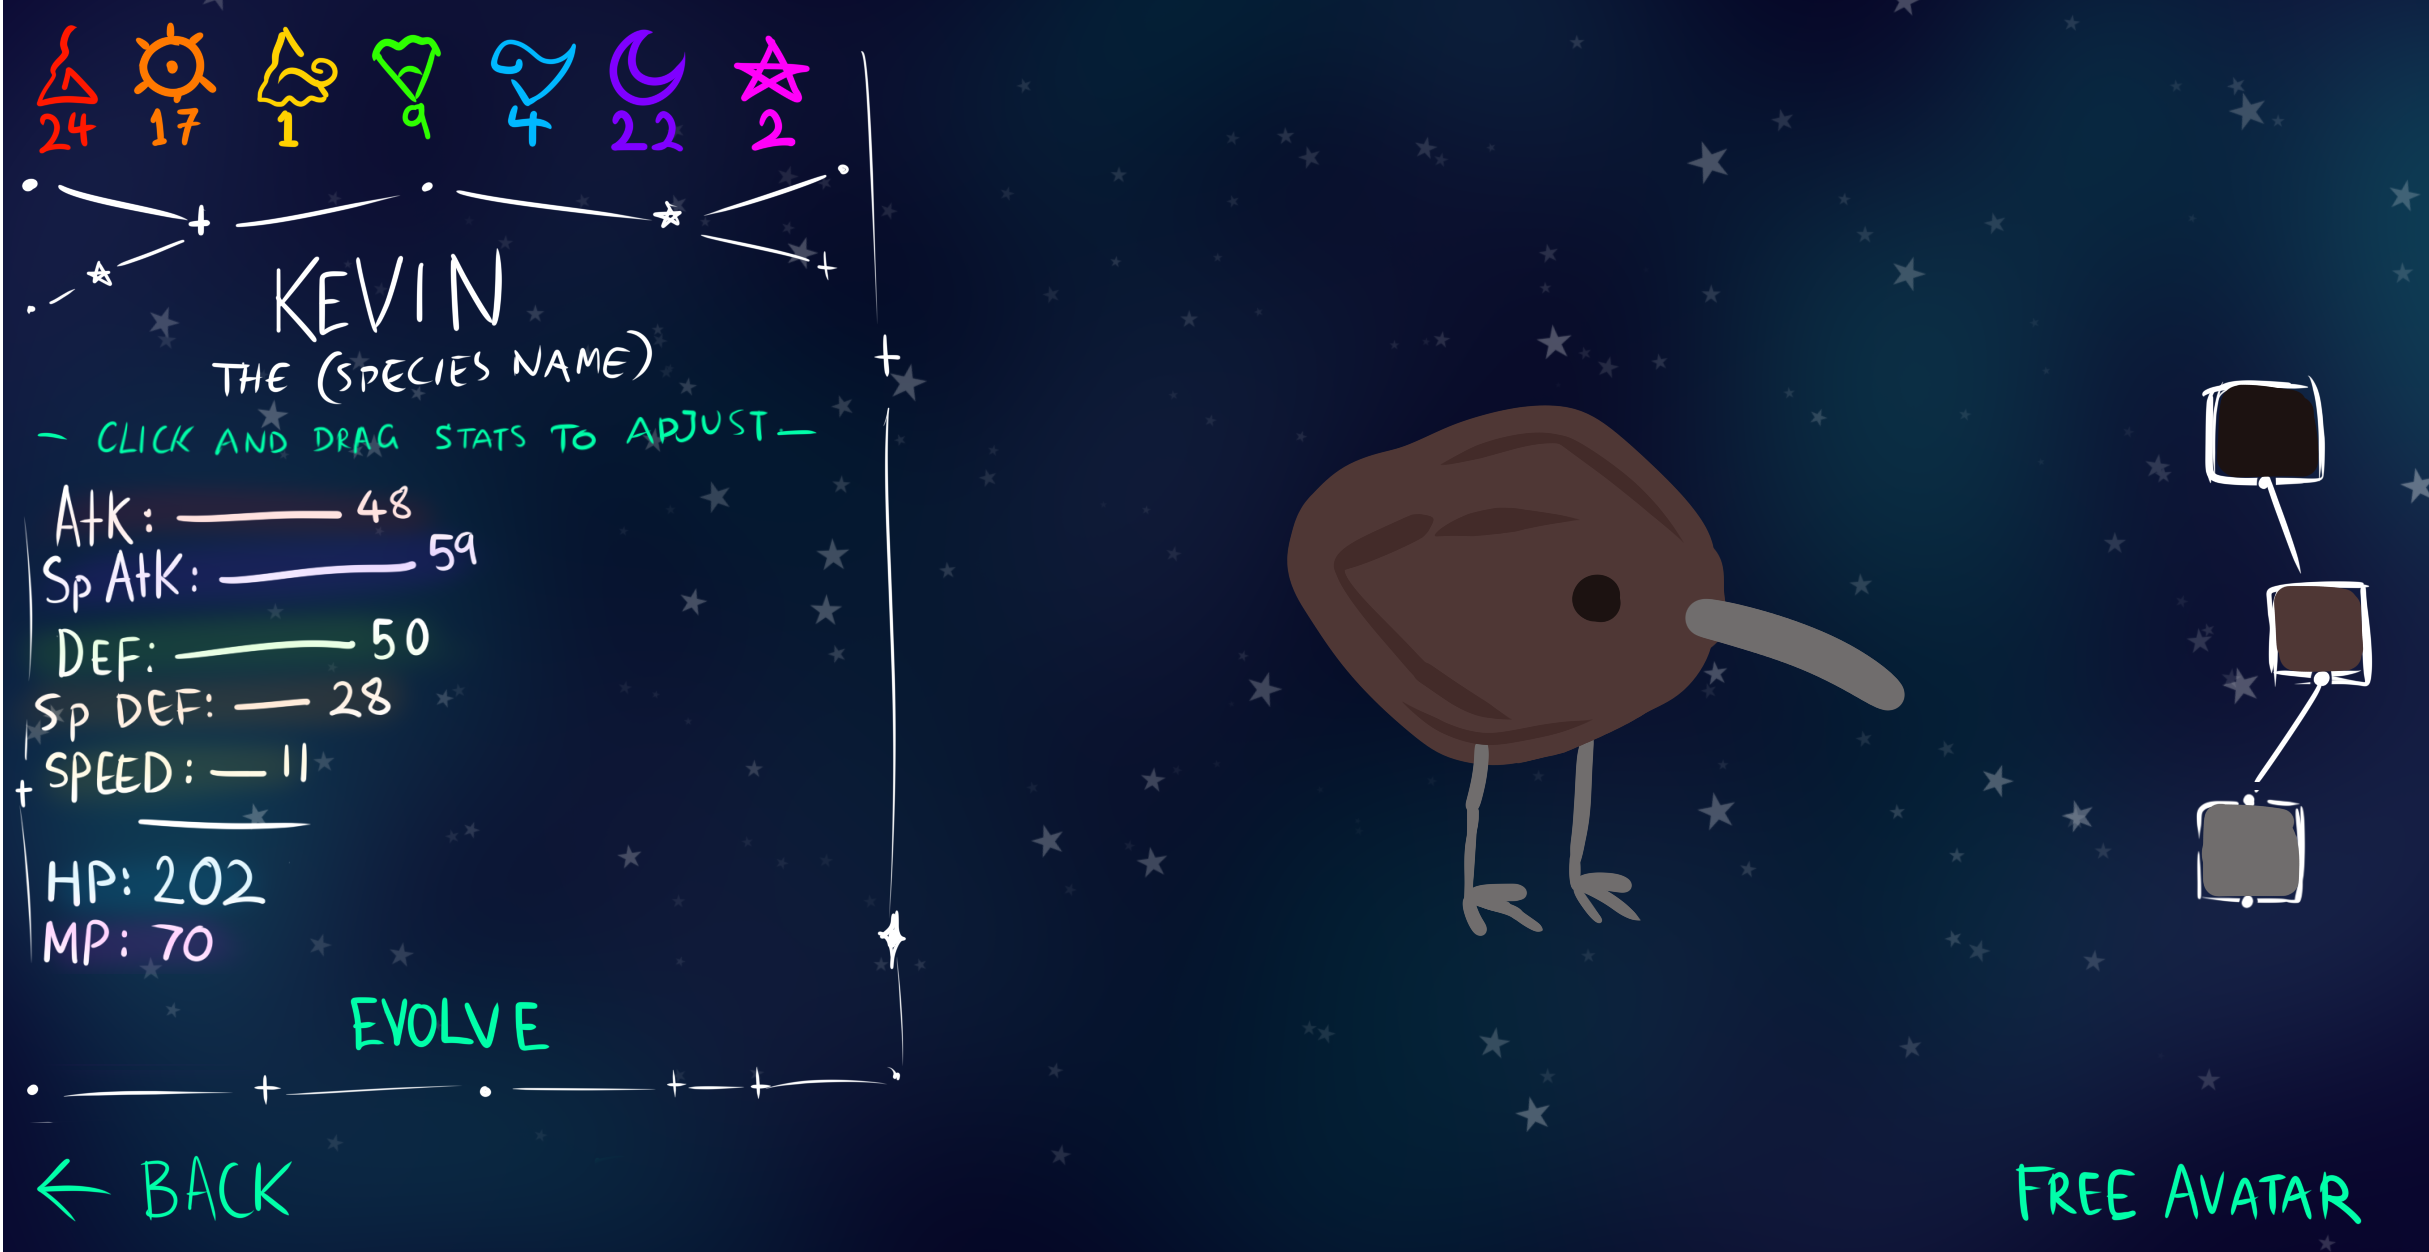 24 17 1 9 4 22 2
KEVIN
THE (SPECIES NAME)
- CLICK AND DRAG STATS TO ADJUST -
AtK: 48
Sp AtK: 59
DEF: 50
Sp DEF: 28
SPEED: 11
HP: 202
MP: 70
EVOLVE
← BACK
FREE AVATAR